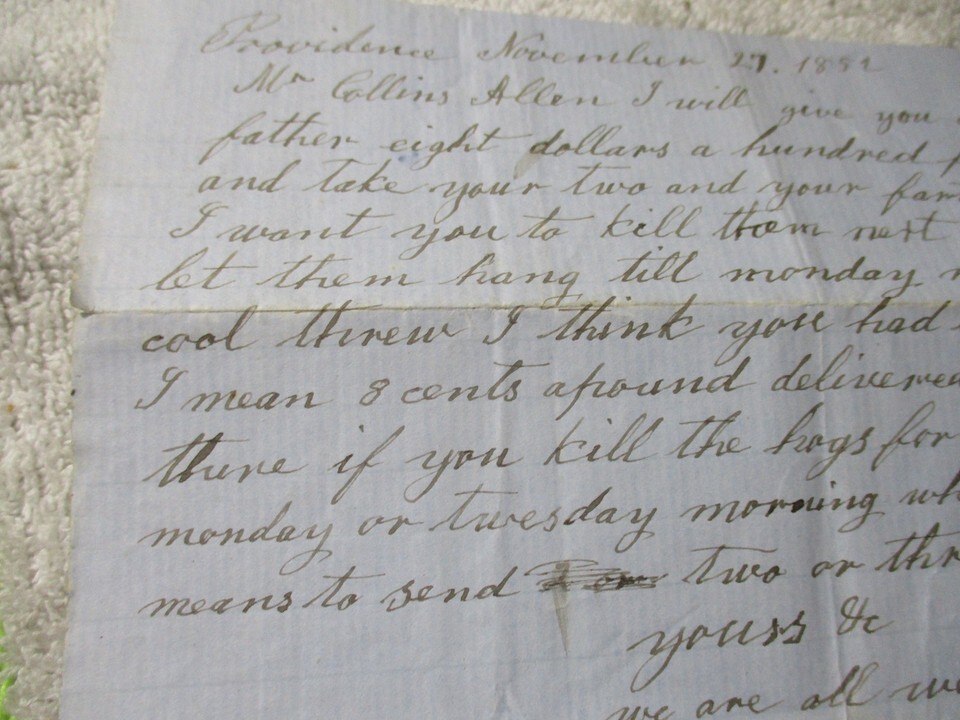 Providence November 27. 1882
Mr Collins Allen I will give you
father eight dollars a hundred
and take your two and your
I want you to kill them next
let them hang till monday
cool threw I think you had
I mean 8 cents apound delivered
there if you kill the hogs for
monday or twesday morning
means to send two or
youss &c
we are all